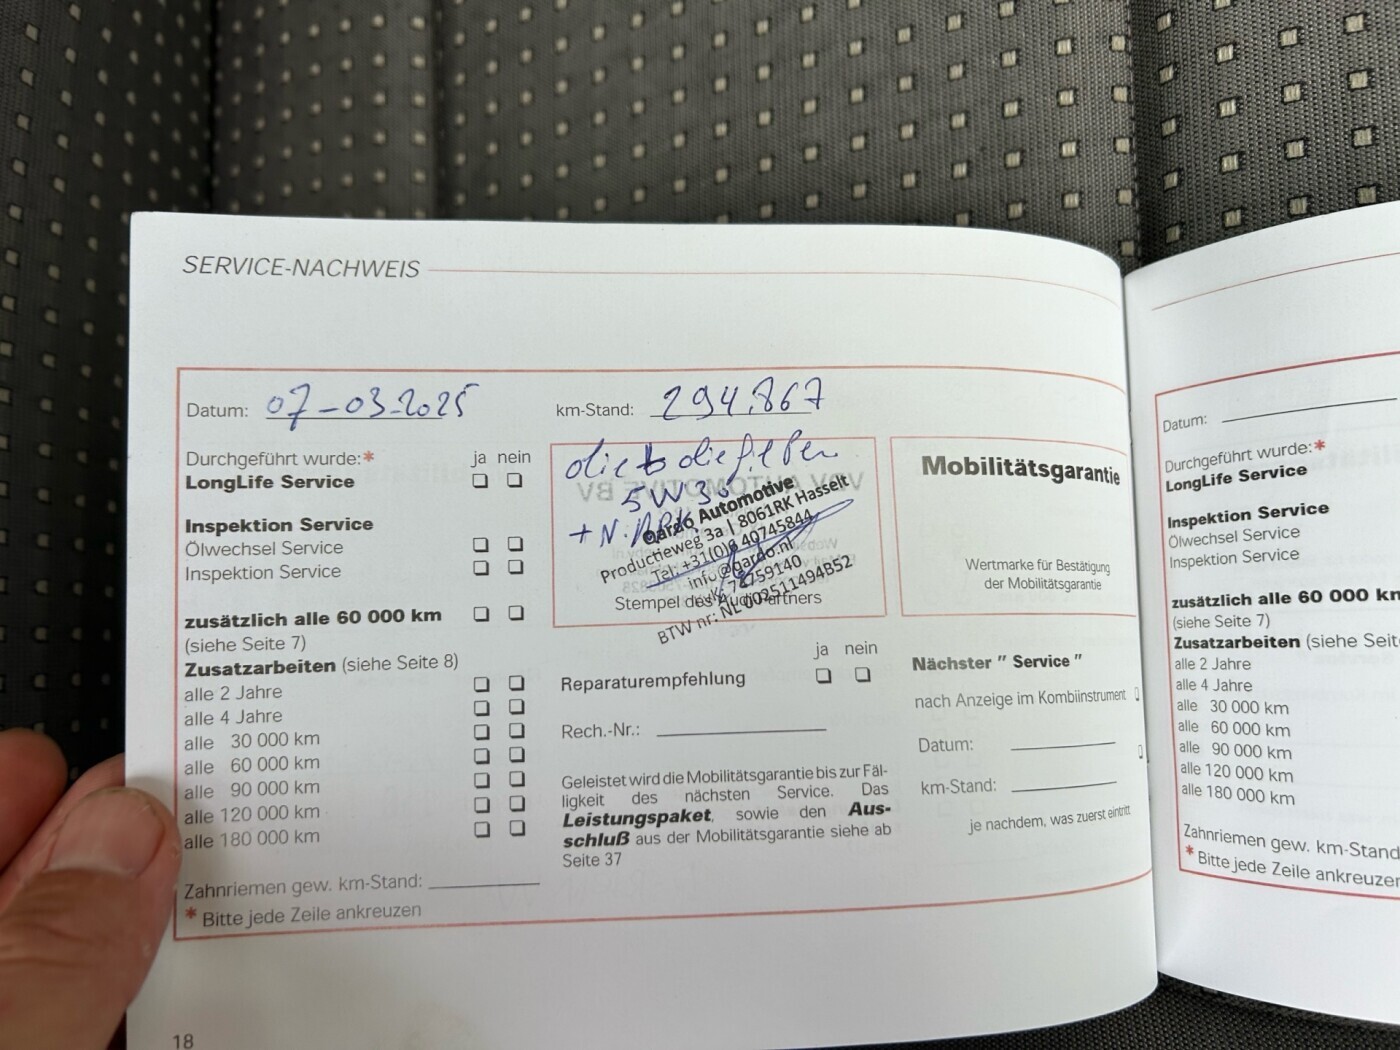 SERVICE-NACHWEIS
Datum: 07-03-2025
km-Stand: 294.867
Durchgeführt wurde:* ja nein
LongLife Service
Inspektion Service
Ölwechsel Service
Inspektion Service
zusätzlich alle 60 000 km
(siehe Seite 7)
Zusatzarbeiten (siehe Seite 8)
alle 2 Jahre
alle 4 Jahre
alle 30 000 km
alle 60 000 km
alle 90 000 km
alle 120 000 km
alle 180 000 km
Zahnriemen gew. km-Stand:
* Bitte jede Zeile ankreuzen
5W30
Qardo Automotive
Productieweg 3a | 8061RK Hasselt
Tel: +31(0)6 40745844
info@qardo.nl
KvK: 74759140
BTW nr: NL 002511494852
Stempel des Audi Partners
ja nein
Reparaturempfehlung
Rech.-Nr.:
Geleistet wird die Mobilitätsgarantie bis zur Fäl-
ligkeit des nächsten Service. Das
Leistungspaket, sowie den Aus-
schluß aus der Mobilitätsgarantie siehe ab
Seite 37
Mobilitätsgarantie
Wertmarke für Bestätigung
der Mobilitätsgarantie
Nächster " Service "
nach Anzeige im Kombiinstrument
Datum:
km-Stand:
je nachdem, was zuerst eintritt
18
Datum:
Durchgeführt wurde:*
LongLife Service
Inspektion Service
Ölwechsel Service
Inspektion Service
zusätzlich alle 60 000 km
(siehe Seite 7)
Zusatzarbeiten (siehe Seit
alle 2 Jahre
alle 4 Jahre
alle 30 000 km
alle 60 000 km
alle 90 000 km
alle 120 000 km
alle 180 000 km
Zahnriemen gew. km-Stand
* Bitte jede Zeile ankreuzen